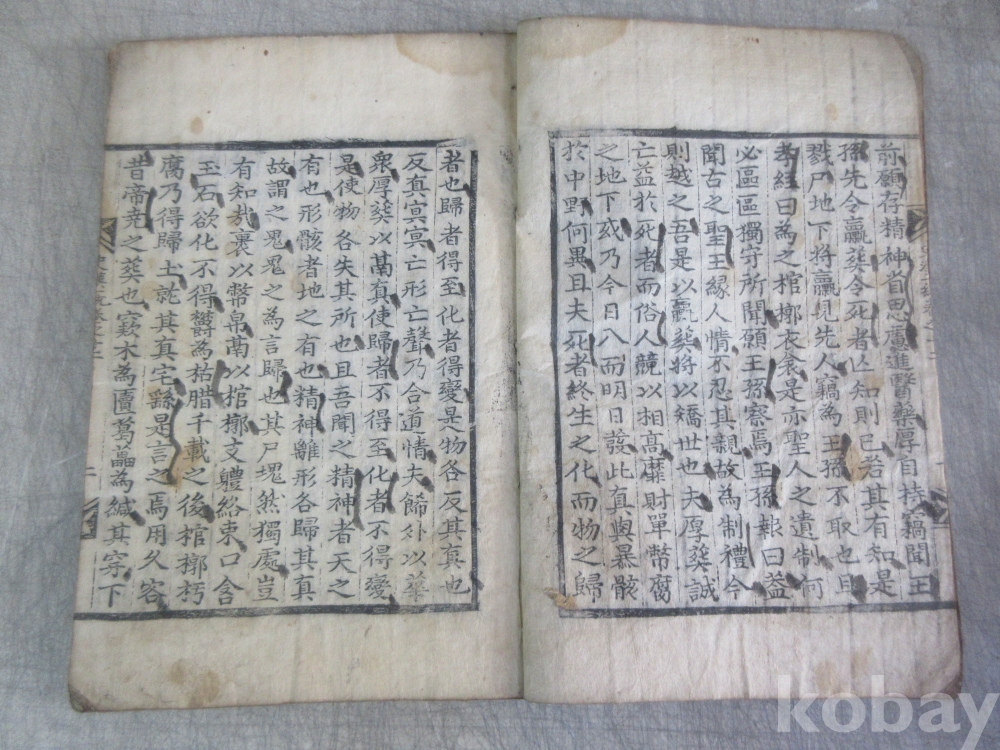 前願存精神首思慮進醫藥厚自持竊聞王
孫先令臝葬令死者亡知則已若其有知是
戮尸地下將臝見先人竊為王孫不取也且
孝經曰為之棺槨衣衾是亦聖人之遺制何
必區區獨守所聞願王孫察焉王孫報曰盖
聞古之聖王緣人情不忍其親故為制禮今
則越之吾是以臝葬將以矯世也夫厚葬誠
亡益於死者而俗人競以相高靡財單幣腐
之地下或乃今日入而明日發此真與暴骸
於中野何異且夫死者終生之化而物之歸
者也歸者得至化者得變是物各反其真也
反真冥冥亡形亡聲乃合道情夫餙外以華
衆厚葬以鬲真使歸者不得至化者不得變
是使物各失其所也且吾聞之精神者天之
有也形骸者地之有也精神離形各歸其真
故謂之鬼鬼之為言歸也其尸塊然獨處豈
有知哉裹以幣帛鬲以棺槨支軆絡束口含
玉石欲化不得欝為枯腊千載之後棺槨朽
腐乃得歸土就其真宅繇是言之焉用久容
昔帝堯之葬也窾木為匵葛藟為緘其穿下
二
kobay